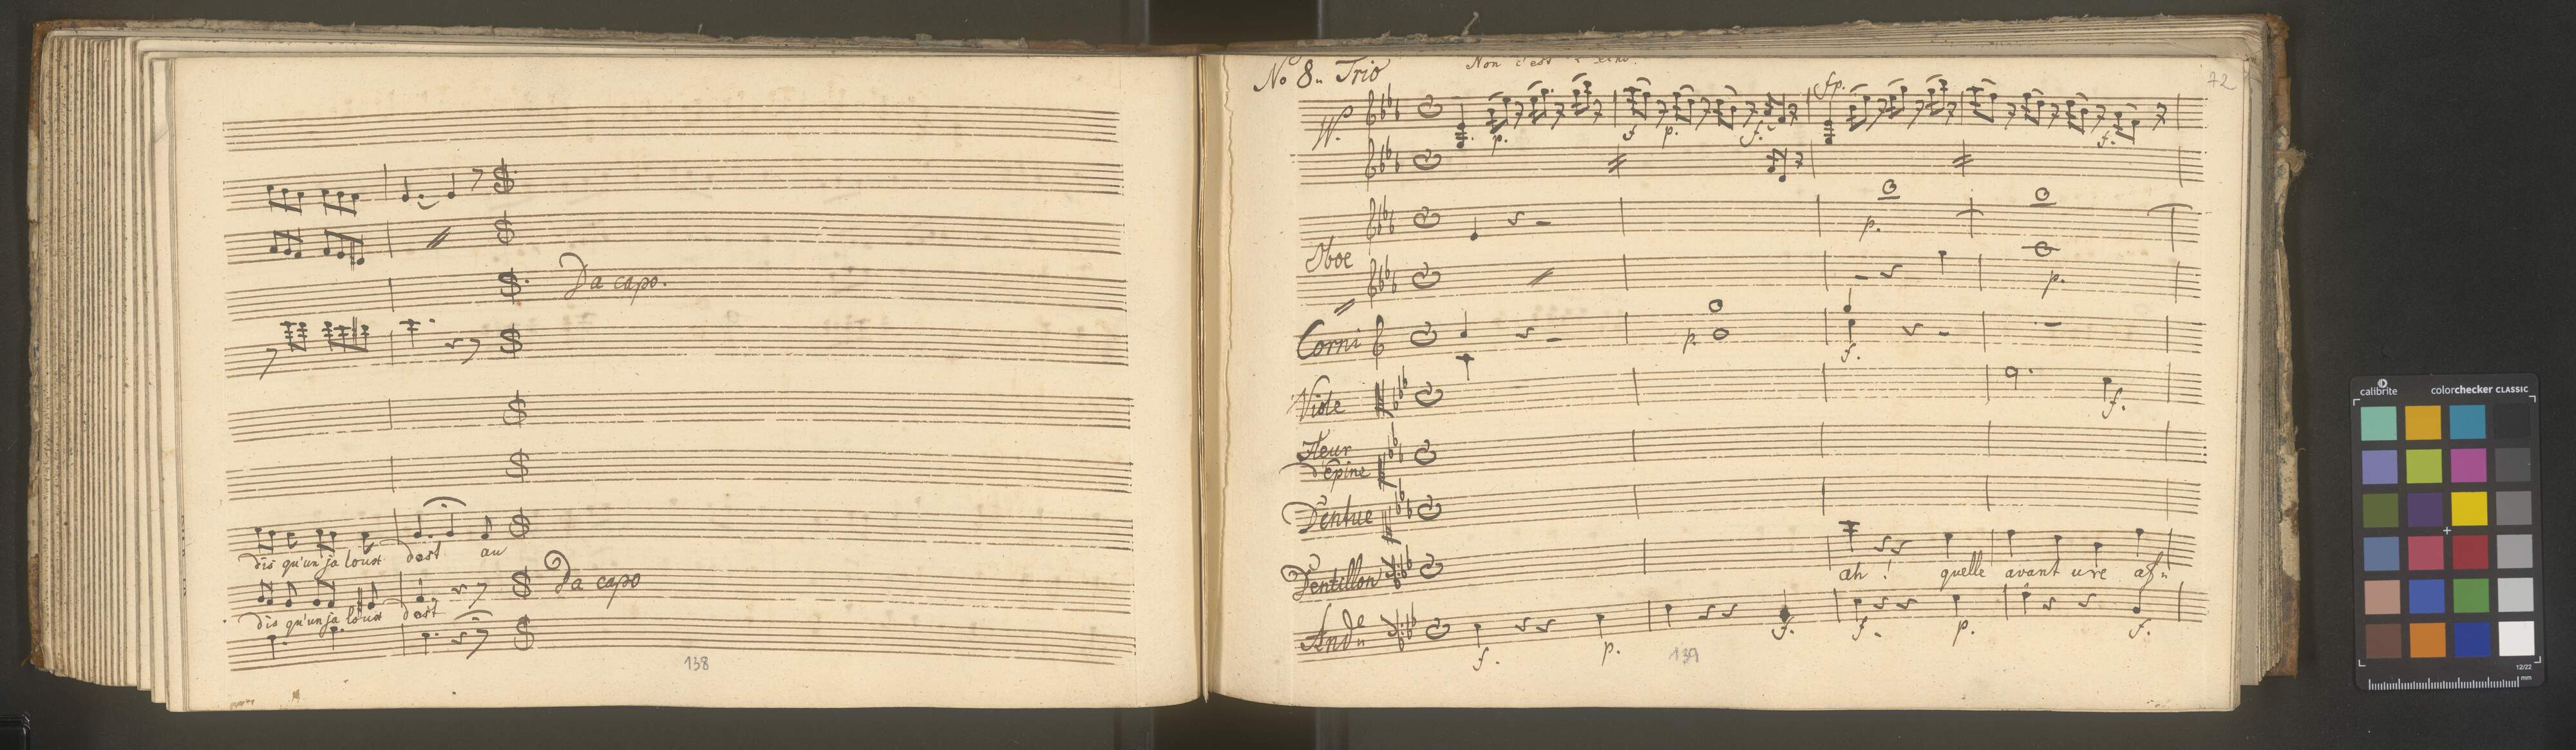 Da capo.
dis qu'un ja loux dort au
Da capo
dis qu'un ja loux dort
138
No 8. Trio
Non c'est
72
fp.
p. f p. f. f.
Oboe
p.
p.
Corni
p f.
Viole
f.
Fleur
d'epine
Dentue
Dentillon
ah! quelle avant ure af
And.
f. p. f. f. p. f.
139
calibrite
colorchecker CLASSIC
12/22
mm